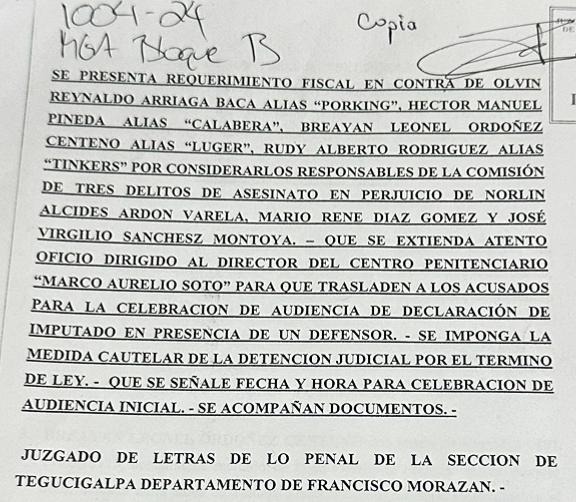 1004-24
Copia
Bloque B
SE PRESENTA REQUERIMIENTO FISCAL EN CONTRA DE OLVIN
REYNALDO ARRIAGA BACA ALIAS “PORKING”, HECTOR MANUEL
PINEDA ALIAS “CALABERA”, BREAYAN LEONEL ORDOÑEZ
CENTENO ALIAS “LUGER”, RUDY ALBERTO RODRIGUEZ ALIAS
“TINKERS” POR CONSIDERARLOS RESPONSABLES DE LA COMISIÓN
DE TRES DELITOS DE ASESINATO EN PERJUICIO DE NORLIN
ALCIDES ARDON VARELA, MARIO RENE DIAZ GOMEZ Y JOSÉ
VIRGILIO SANCHESZ MONTOYA. – QUE SE EXTIENDA ATENTO
OFICIO DIRIGIDO AL DIRECTOR DEL CENTRO PENITENCIARIO
“MARCO AURELIO SOTO” PARA QUE TRASLADEN A LOS ACUSADOS
PARA LA CELEBRACION DE AUDIENCIA DE DECLARACIÓN DE
IMPUTADO EN PRESENCIA DE UN DEFENSOR. - SE IMPONGA LA
MEDIDA CAUTELAR DE LA DETENCION JUDICIAL POR EL TERMINO
DE LEY. - QUE SE SEÑALE FECHA Y HORA PARA CELEBRACION DE
AUDIENCIA INICIAL. - SE ACOMPAÑAN DOCUMENTOS. -
JUZGADO DE LETRAS DE LO PENAL DE LA SECCION DE
TEGUCIGALPA DEPARTAMENTO DE FRANCISCO MORAZAN. -